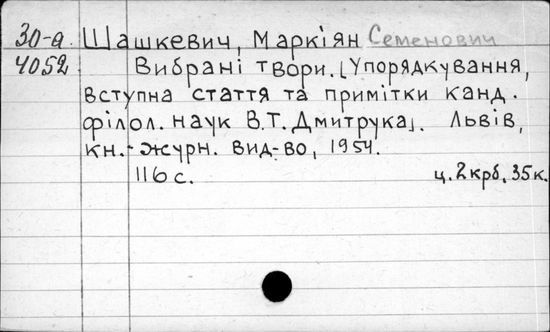 30-а Шашкевич, Маркіян Семенович
4052 Вибрані твори. [Упорядкування,
вступна стаття та примітки канд.
філол. наук В.Т. Дмитрука]. Львів,
кн.-журн. вид-во, 1954.
116 с. ц. 2 крб. 35 к.